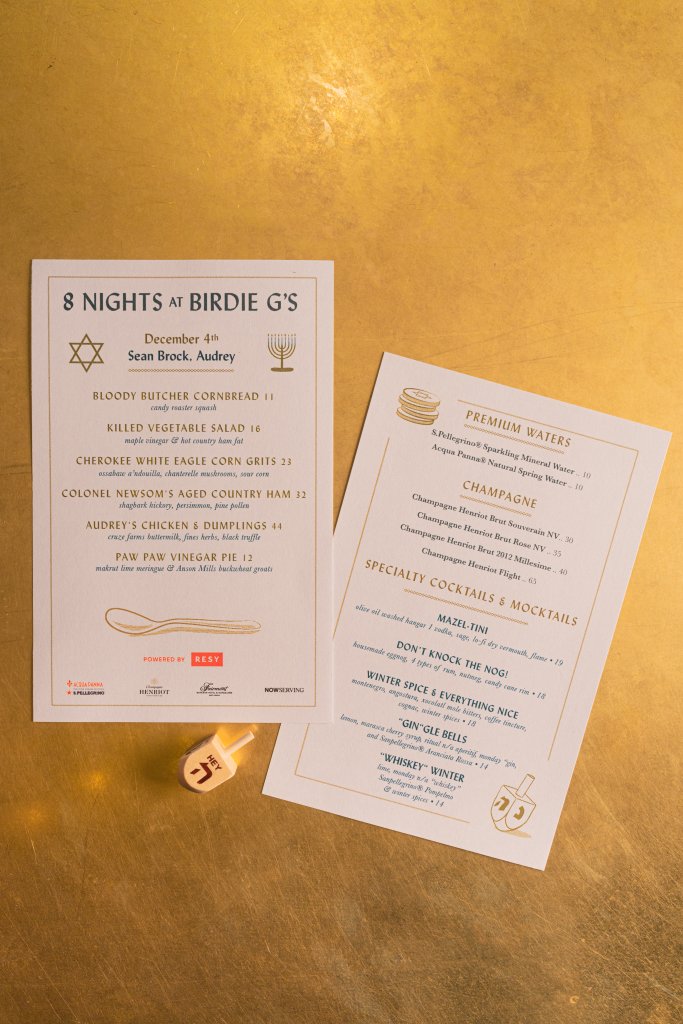 8 NIGHTS AT BIRDIE G'S
December 4th
Sean Brock, Audrey
BLOODY BUTCHER CORNBREAD 11
candy roaster squash
KILLED VEGETABLE SALAD 16
maple vinegar & hot country ham fat
CHEROKEE WHITE EAGLE CORN GRITS 23
ossabaw a'ndouilla, chanterelle mushrooms, sour corn
COLONEL NEWSOM'S AGED COUNTRY HAM 32
shagbark hickory, persimmon, pine pollen
AUDREY'S CHICKEN & DUMPLINGS 44
cruze farms buttermilk, fines herbs, black truffle
PAW PAW VINEGAR PIE 12
makrut lime meringue & Anson Mills buckwheat groats
POWERED BY RESY
ACQUA PANNA
S.PELLEGRINO
Champagne
HENRIOT
Fairmont
NOWSERVING
HEY
ה
PREMIUM WATERS
S.Pellegrino® Sparkling Mineral Water .. 10
Acqua Panna® Natural Spring Water .. 10
CHAMPAGNE
Champagne Henriot Brut Souverain NV . 30
Champagne Henriot Brut Rose NV .. 35
Champagne Henriot Brut 2012 Millesime .. 40
Champagne Henriot Flight .. 65
SPECIALTY COCKTAILS & MOCKTAILS
MAZEL-TINI
olive oil washed hangar 1 vodka, sage, lo-fi dry vermouth, flame • 19
DON'T KNOCK THE NOG!
housemade eggnog, 4 types of rum, nutmeg, candy cane rim • 18
WINTER SPICE & EVERYTHING NICE
montenegro, angostura, xocolatl mole bitters, coffee tincture,
cognac, winter spices • 18
"GIN"GLE BELLS
lemon, marasca cherry syrup, ritual n/a aperitif, monday "gin,
and Sanpellegrino® Aranciata Rossa • 14
"WHISKEY" WINTER
lime, monday n/a "whiskey"
Sanpellegrino® Pompelmo
& winter spices • 14
ה נ